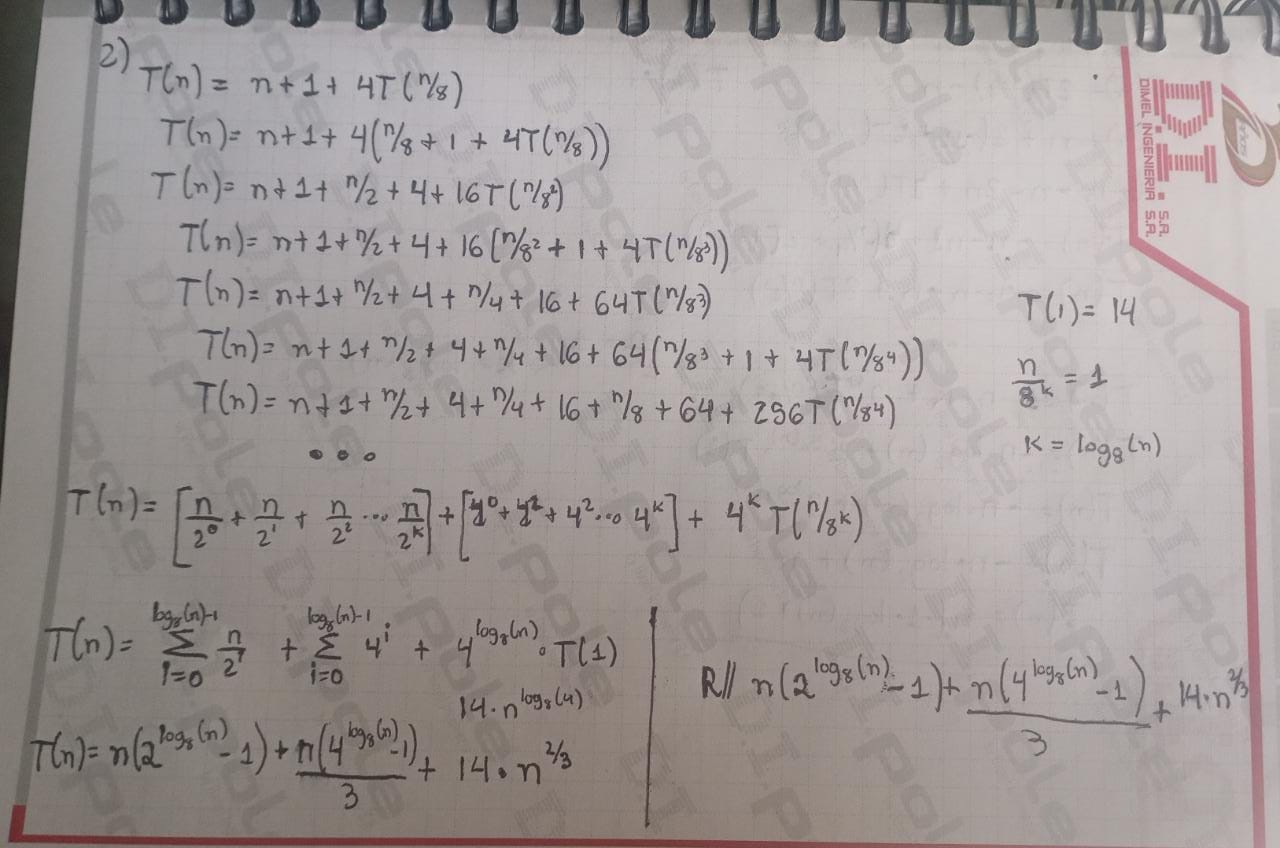 2)
T(n) = n + 1 + 4T(n/8)
T(n) = n + 1 + 4(n/8 + 1 + 4T(n/8))
T(n) = n + 1 + n/2 + 4 + 16T(n/8²)
T(n) = n + 1 + n/2 + 4 + 16(n/8² + 1 + 4T(n/8³))
T(n) = n + 1 + n/2 + 4 + n/4 + 16 + 64T(n/8³)
T(n) = n + 1 + n/2 + 4 + n/4 + 16 + 64(n/8³ + 1 + 4T(n/8⁴))
T(n) = n + 1 + n/2 + 4 + n/4 + 16 + n/8 + 64 + 256T(n/8⁴)
• • •
T(1) = 14
n/8^k = 1
K = log₈(n)
T(n) = [n/2⁰ + n/2¹ + n/2² ... n/2^k] + [4⁰ + 4² + 4² ... 4^k] + 4^k T(n/8^k)
T(n) = Σ_{i=0}^{log₈(n)-1} n/2^i + Σ_{i=0}^{log₈(n)-1} 4^i + 4^{log₈(n)} · T(1)
14 · n^{log₈(4)}
T(n) = n(2^{log₈(n)} - 1) + n(4^{log₈(n)} - 1)/3 + 14 · n^{2/3}
R// n(2^{log₈(n)} - 1) + n(4^{log₈(n)} - 1)/3 + 14 · n^{2/3}
D.I. S.A.
DIMEL INGENIERIA S.A.
D.I.Pole